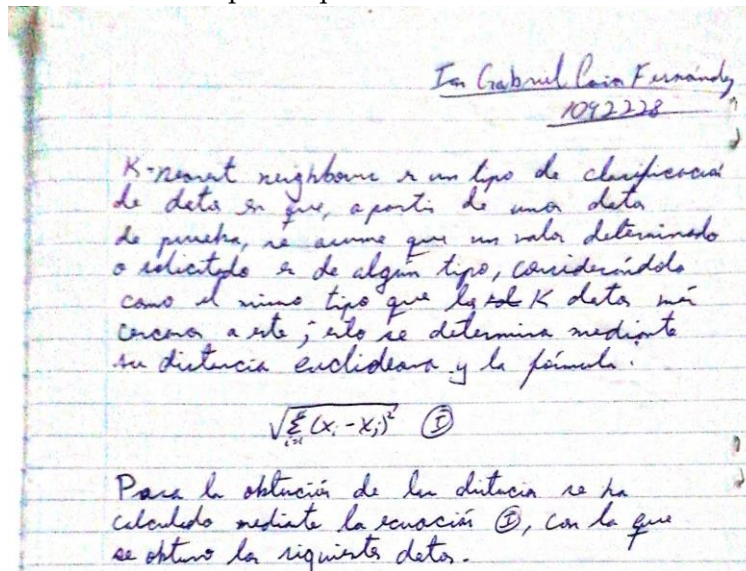 Ian Gabriel Fernández
1092228
K-nearest neighbours es un tipo de clasificación
de datos en que, a partir de unos datos
de prueba, se asume que un valor determinado
o solicitado es de algún tipo, considerándolo
como el mismo tipo que los K datos más
cercanos a este; esto se determina mediante
su distancia euclideana y la fórmula:
√Σ(xᵢ-xⱼ)² Ⓘ
i=1
Para la obtención de la distancia se ha
calculado mediante la ecuación Ⓘ, con la que
se obtuvo los siguientes datos.